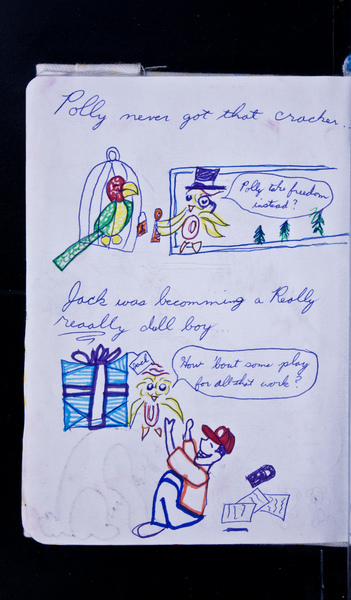 Polly never got that cracker...
Polly take freedom
instead?
Jack was becomming a Really
reaally dull boy...
Jack
How 'bout some play
for all that work?